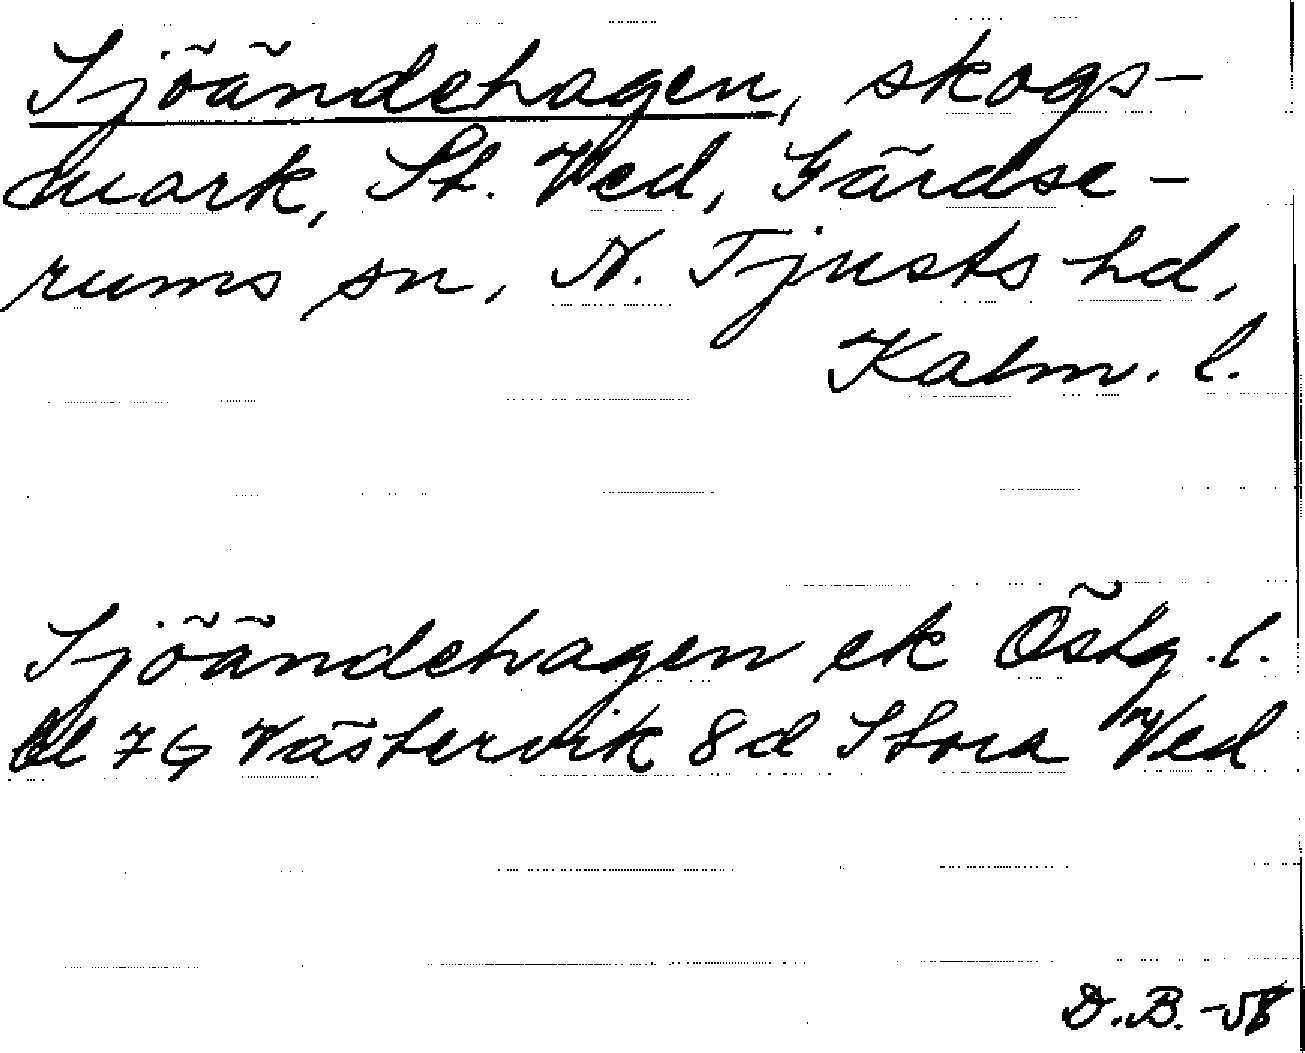 Sjöändehagen, skogs-
mark, St. Ved, Gärdse-
rums sn, N. Tjusts hd,
Kalm. l.
Sjöändehagen ek Östg. l.
bl 7 G Västervik 8d Stora Ved
D.B. -58